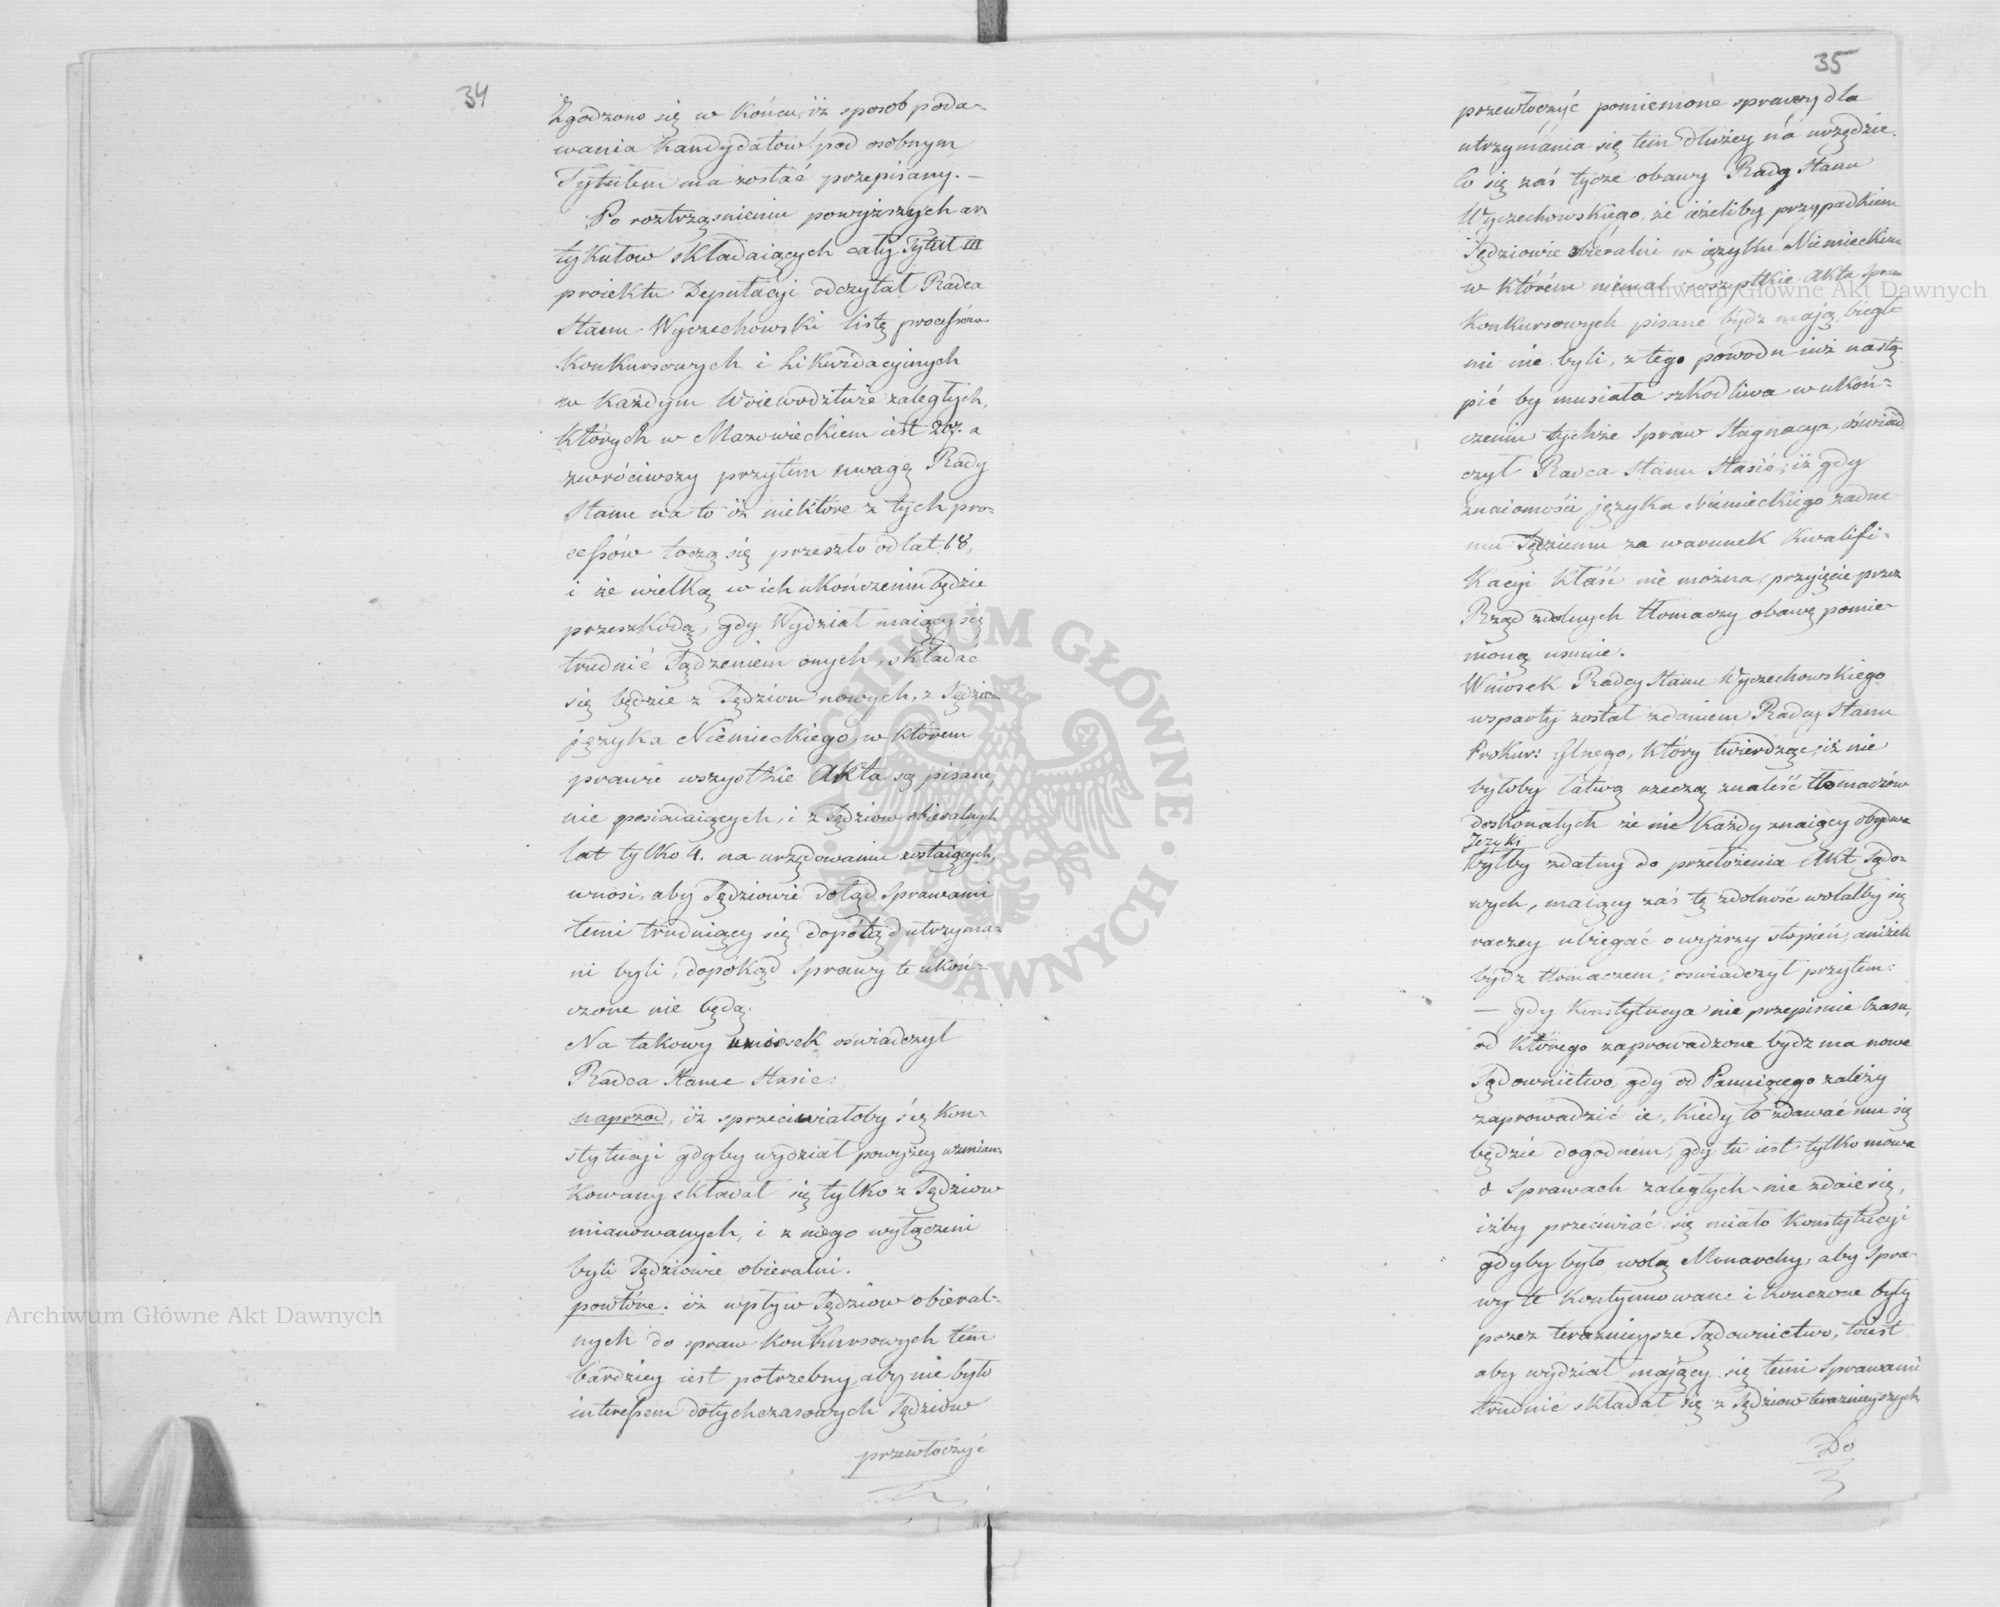 34
Zgodzono się w końcu, iż sposob poda-
wania Kandydatow pod osobnym
Tytułem ma zostać przepisany. —
Po roztrząsnieniu powyższych ar-
tykułow składaiących cały Tytuł III
proiektu Deputacyi odczytał Radca
Stanu Wyczechowski listę processów
Konkursowych i Likwidacyinych
w każdym Woiewodztwie zaległych,
których w Mazowieckiem iest 207. a
zwróciwszy przytém uwagę Rady
Stanu na to iż niektóre z tych pro-
cessów toczą się przeszło od lat 18,
i że wielką w ich ukończeniu będzie
przeszkodą, gdy Wydział maiący się
trudnić Sądzeniem onych, składać
się będzie z Sędziow nowych, z Sędziow
języka Niemieckiego, w którem
prawie wszystkie Akta są pisane,
nie posiadaiących, i z Sędziow obieralnych
lat tylko 4. na urzędowaniu zostaiących,
wnosi, aby Sędziowie dotąd Sprawami
temi trudniący się dopótąd utrzyma-
ni byli, dopókąd Sprawy te ukoń-
czone nie będą.
Na takowy wniosek oświadczył
Radca Stanu Stasic:
naprzod, iż sprzeciwiałoby się Kon-
stytucyi gdyby wydział powyżey wzmian-
kowany składał się tylko z Sędziow
mianowanych, i z niego wyłączeni
byli Sędziowie obieralni.
powtóre. iż wpływ Sędziow obieral-
nych do spraw konkursowych tém
bardziey iest potrzebny, aby nie było
interessem dotychczasowych Sędziow
przewłoczyć
35
przewłoczyć pomienione sprawy dla
utrzymania się tem dłużey na urzędzie.
Co się zaś tycze obawy Radcy Stanu
Wyczechowskiego, że ieżeliby przypadkiem
Sędziowie obieralni w ięzyku Niemieckim
w którém niemal wszystkie Akta Spraw
Konkursowych pisane bydz maią, biegłe-
mi nie byli, z tego powodu iuż nastą-
pić by musiała szkodliwa w ukoń-
czeniu tychże Spraw Stagnacya, oświad-
czył Radca Stanu Stasic, iż gdy
znaiomości języka Niemieckiego żadne-
mu Sędziemu za warunek Kwalifi-
kacyi kłaść nie można, przyięcie przez
Rząd zdolnych tłomaczy obawę pomie-
nioną usunie.
Wniosek Radcy Stanu Wyczechowskiego
wsparty został zdaniem Radcy Stanu
Prokur: Glnego, który twierdząc, iż nie
byłoby łatwą rzeczą znaleść tłomaczów
doskonałych że nie każdy znaiący obydwa
Języki
byłby zdatny do przełożenia Akt Sądo-
wych, maiący zaś tę zdolność wolałby się
raczey ubiegać o wyższy stopień, aniżeli
bydz tłomaczem; oświadczył przytem:
— gdy Konstytucya nie przepisuie czasu,
od którego zaprowadzone bydz ma nowe
Sądownictwo, gdy od Panuiącego zależy
zaprowadzić ie, kiedy to zdawać mu się
będzie dogodném, gdy tu iest tylko mowa
o Sprawach zaległych, nie zdaie się,
iżby przeciwiać się miało Konstytucyi
gdyby było wolą Monarchy, aby Spra-
wy te kontynuowane i kończone były
przez teraznieysze Sądownictwo, toiest
aby wydział maiący się temi Sprawami
trudnić składał się z Sędziow teraznieyszych
Do
Archiwum Główne Akt Dawnych
Archiwum Główne Akt Dawnych
ARCHIWUM GŁÓWNE AKT DAWNYCH